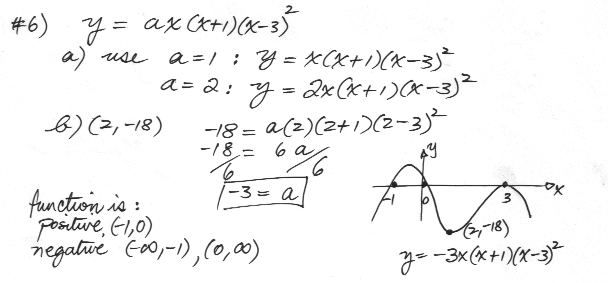 #6) y = ax(x+1)(x-3)²
a) use a=1 : y = x(x+1)(x-3)²
a=2 : y = 2x(x+1)(x-3)²
b) (2,-18) -18 = a(2)(2+1)(2-3)²
-18/6 = 6a/6
-3 = a
function is :
positive, (-1,0)
negative (-∞,-1), (0,∞)
y
-1 0 3 x
(2,-18)
y = -3x(x+1)(x-3)²